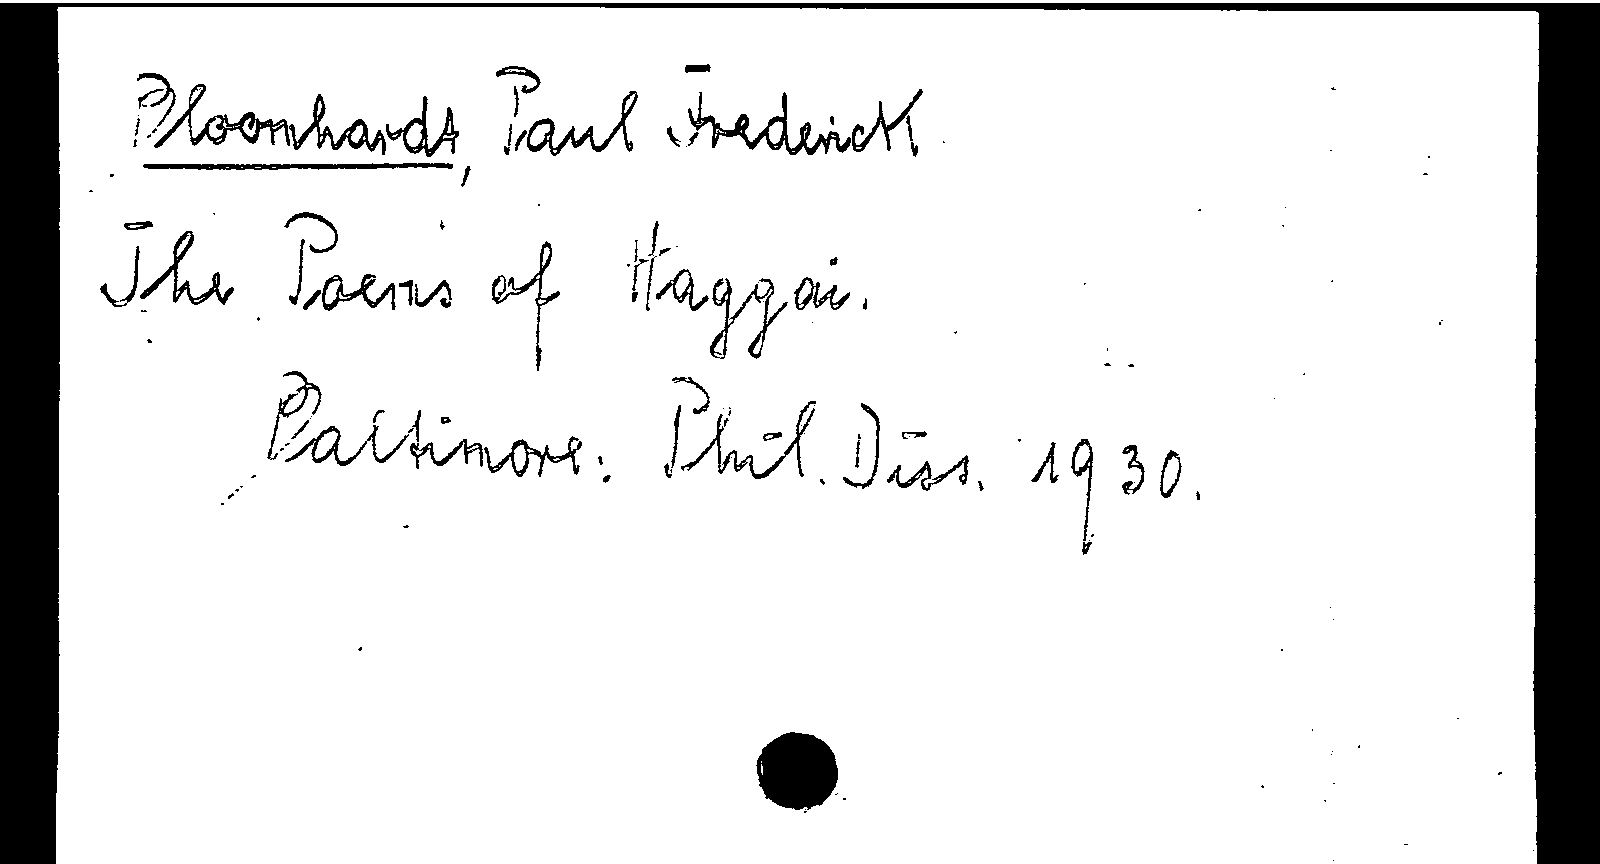 Bloomhardt, Paul Frederick
The Poems of Haggai.
Baltimore: Phil. Diss. 1930.